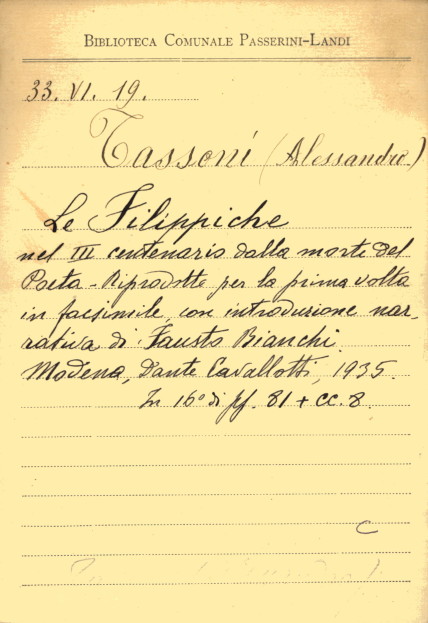 BIBLIOTECA COMUNALE PASSERINI-LANDI
33. VI. 19.
Tassoni (Alessandro)
Le Filippiche
nel III centenario dalla morte del
Poeta - Riprodotte per la prima volta
in facsimile, con introduzione nar-
rativa di Fausto Bianchi.
Modena, Dante Cavallotti, 1935.
In 16° di pp. 81 + cc. 8.
C